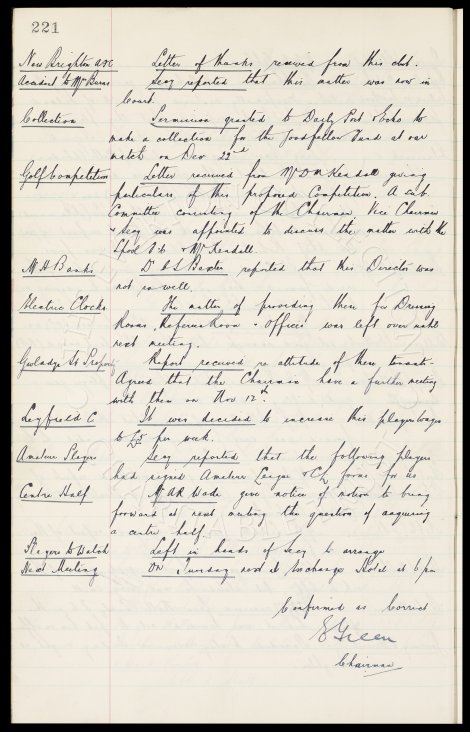 221
New Brighton AFC Letter of thanks received from this club.
Accident to Mr Burns Secy reported that this matter was now in
Court.
Collection Permission granted to Daily Post & Echo to
make a collection for the Goodfellow Fund at our
match on Dec 22nd
Golf Competition Letter received from Mr D M Kendall giving
particulars of this proposed Competition. A sub.
Committee consisting of the Chairman Vice Chairman
& Secy was appointed to discuss the matter with the
Lpool F.C. & Mr Kendall.
Mr H Banks Dr C S Baxter reported that this Director was
not so well.
Electric Clocks The matter of providing these for Dressing
Rooms, Referees Room & Offices was left over until
next meeting.
Gwladys St Property Report received re attitude of these tenants-
Agreed that the Chairman have a further meeting
with them on Nov 12th.
Leyfield C It was decided to increase this players wages
to £5 per week.
Amateur Players Secy reported that the following players
had signed Amateur League forms for us
Centre Half Mr A R Wade give notice of motion to bring
forward at next meeting the question of acquiring
a centre half.
Players to Watch Left in hands of Secy to arrange
Next Meeting On Tuesday next at Exchange Hotel at 6 pm
Confirmed as Correct
E Green
Chairman